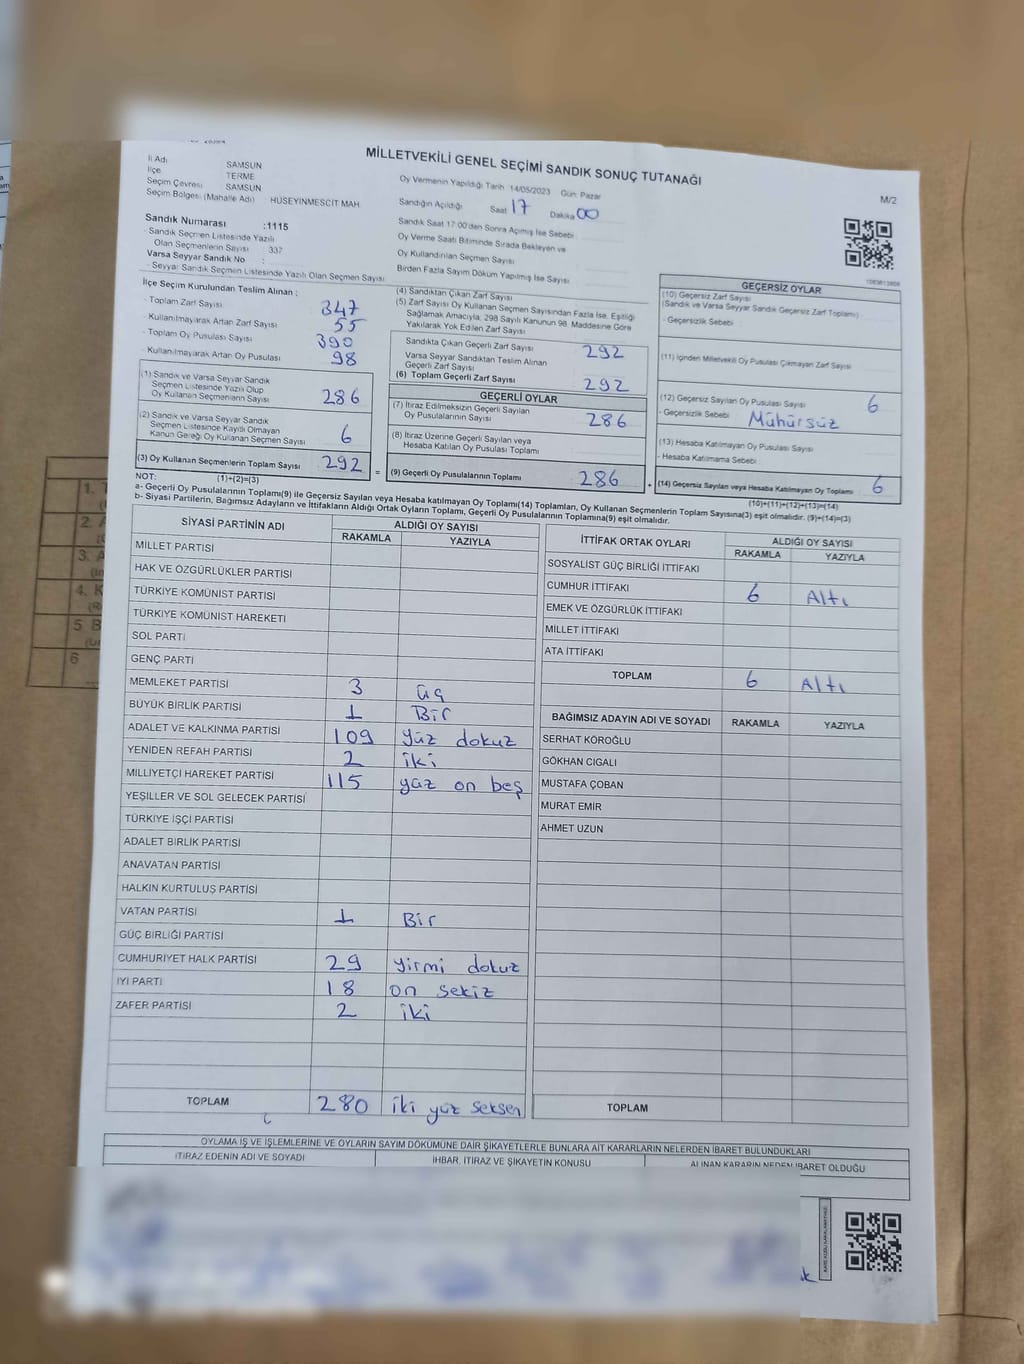 MİLLETVEKİLİ GENEL SEÇİMİ SANDIK SONUÇ TUTANAĞI
M/2
İl Adı SAMSUN
İlçe TERME
Seçim Çevresi SAMSUN
Seçim Bölgesi (Mahalle Adı) HÜSEYİNMESCİT MAH.
Oy Vermenin Yapıldığı Tarih 14/05/2023 Gün: Pazar
Sandığın Açıldığı Saat 17 Dakika 00
Sandık Saat 17:00'den Sonra Açılmış İse Sebebi
Oy Verme Saati Bitiminde Sırada Bekleyen ve
Oy Kullandırılan Seçmen Sayısı
Birden Fazla Sayım Döküm Yapılmış İse Sayısı
Sandık Numarası :1115
- Sandık Seçmen Listesinde Yazılı
Olan Seçmenlerin Sayısı : 337
Varsa Seyyar Sandık No :
- Seyyar Sandık Seçmen Listesinde Yazılı Olan Seçmen Sayısı
İlçe Seçim Kurulundan Teslim Alınan :
- Toplam Zarf Sayısı 347
- Kullanılmayarak Artan Zarf Sayısı 55
- Toplam Oy Pusulası Sayısı 390
- Kullanılmayarak Artan Oy Pusulası 98
(1) Sandık ve Varsa Seyyar Sandık
Seçmen Listesinde Yazılı Olup
Oy Kullanan Seçmenlerin Sayısı 286
(2) Sandık ve Varsa Seyyar Sandık
Seçmen Listesinde Kayıtlı Olmayan
Kanun Gereği Oy Kullanan Seçmen Sayısı 6
(3) Oy Kullanan Seçmenlerin Toplam Sayısı 292
(1)+(2)=(3)
(4) Sandıktan Çıkan Zarf Sayısı
(5) Zarf Sayısı Oy Kullanan Seçmen Sayısından Fazla İse, Eşitliği
Sağlamak Amacıyla, 298 Sayılı Kanunun 98. Maddesine Göre
Yakılarak Yok Edilen Zarf Sayısı
Sandıkta Çıkan Geçerli Zarf Sayısı 292
Varsa Seyyar Sandıktan Teslim Alınan
Geçerli Zarf Sayısı
(6) Toplam Geçerli Zarf Sayısı 292
GEÇERLİ OYLAR
(7) İtiraz Edilmeksizin Geçerli Sayılan
Oy Pusulalarının Sayısı 286
(8) İtiraz Üzerine Geçerli Sayılan veya
Hesaba Katılan Oy Pusulası Toplamı
= (9) Geçerli Oy Pusulalarının Toplamı 286 +
GEÇERSİZ OYLAR
(10) Geçersiz Zarf Sayısı
(Sandık ve Varsa Seyyar Sandık Geçersiz Zarf Toplamı)
- Geçersizlik Sebebi
(11) İçinden Milletvekili Oy Pusulası Çıkmayan Zarf Sayısı
(12) Geçersiz Sayılan Oy Pusulası Sayısı 6
- Geçersizlik Sebebi Mühürsüz
(13) Hesaba Katılmayan Oy Pusulası Sayısı
- Hesaba Katılmama Sebebi
(14) Geçersiz Sayılan veya Hesaba Katılmayan Oy Toplamı 6
(10)+(11)+(12)+(13)=(14)
NOT:
a- Geçerli Oy Pusulalarının Toplamı(9) ile Geçersiz Sayılan veya Hesaba katılmayan Oy Toplamı(14) Toplamları, Oy Kullanan Seçmenlerin Toplam Sayısına(3) eşit olmalıdır. (9)+(14)=(3)
b- Siyasi Partilerin, Bağımsız Adayların ve İttifakların Aldığı Ortak Oyların Toplamı, Geçerli Oy Pusulalarının Toplamına(9) eşit olmalıdır.
SİYASİ PARTİNİN ADI ALDIĞI OY SAYISI
RAKAMLA YAZIYLA
MİLLET PARTİSİ
HAK VE ÖZGÜRLÜKLER PARTİSİ
TÜRKİYE KOMÜNİST PARTİSİ
TÜRKİYE KOMÜNİST HAREKETİ
SOL PARTİ
GENÇ PARTİ
MEMLEKET PARTİSİ 3 üç
BÜYÜK BİRLİK PARTİSİ 1 Bir
ADALET VE KALKINMA PARTİSİ 109 yüz dokuz
YENİDEN REFAH PARTİSİ 2 iki
MİLLİYETÇİ HAREKET PARTİSİ 115 yüz on beş
YEŞİLLER VE SOL GELECEK PARTİSİ
TÜRKİYE İŞÇİ PARTİSİ
ADALET BİRLİK PARTİSİ
ANAVATAN PARTİSİ
HALKIN KURTULUŞ PARTİSİ
VATAN PARTİSİ 1 Bir
GÜÇ BİRLİĞİ PARTİSİ
CUMHURİYET HALK PARTİSİ 29 yirmi dokuz
İYİ PARTİ 18 on sekiz
ZAFER PARTİSİ 2 iki
TOPLAM 280 iki yüz seksen
İTTİFAK ORTAK OYLARI ALDIĞI OY SAYISI
RAKAMLA YAZIYLA
SOSYALİST GÜÇ BİRLİĞİ İTTİFAKI
CUMHUR İTTİFAKI 6 Altı
EMEK VE ÖZGÜRLÜK İTTİFAKI
MİLLET İTTİFAKI
ATA İTTİFAKI
TOPLAM 6 Altı
BAĞIMSIZ ADAYIN ADI VE SOYADI RAKAMLA YAZIYLA
SERHAT KÖROĞLU
GÖKHAN CIGALI
MUSTAFA ÇOBAN
MURAT EMİR
AHMET UZUN
TOPLAM
OYLAMA İŞ VE İŞLEMLERİNE VE OYLARIN SAYIM DÖKÜMÜNE DAİR ŞİKAYETLERLE BUNLARA AİT KARARLARIN NELERDEN İBARET BULUNDUKLARI
İTİRAZ EDENİN ADI VE SOYADI
İHBAR, İTİRAZ VE ŞİKAYETİN KONUSU
ALINAN KARARIN NEDEN İBARET OLDUĞU